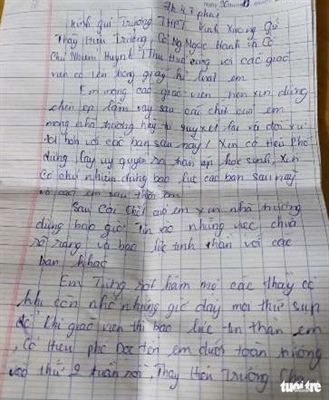 Kính gửi Trường THPT Vĩnh Xương Quí
Thầy Hiệu Trưởng, Cô Ngọc Hạnh và Cô
Chủ Nhiệm Huỳnh Thị Thu cùng với các giáo
viên có tên trong giấy kỉ luật em
Em mong các giáo viên nên xin đừng
chèn ép lần này sau cái chết của em
mong nhà trường hãy tự quyết và đối xử
tốt hơn với các bạn sau này! Xin cô Hiệu Phó
đừng lấy uy quyền ra đàn áp học sinh, xin
Cô chủ nhiệm đừng bạo lực các bạn sau này
em sau
Sau cái chết của em xin nhà trường
đừng bao giờ những việc chưa
rõ ràng và bạo lực tinh thần với các
bạn khác
Em từng rất hâm mộ các thầy cô
khi còn nhỏ nhưng giờ đây mọi thứ sụp
đổ khi giáo viên thì bạo lực tin thần em
, Cô Hiệu phó Đọc tên em dưới toàn trường
vào thứ 2 tuần rồi, Thầy Hiệu Trưởng
tuổi trẻ